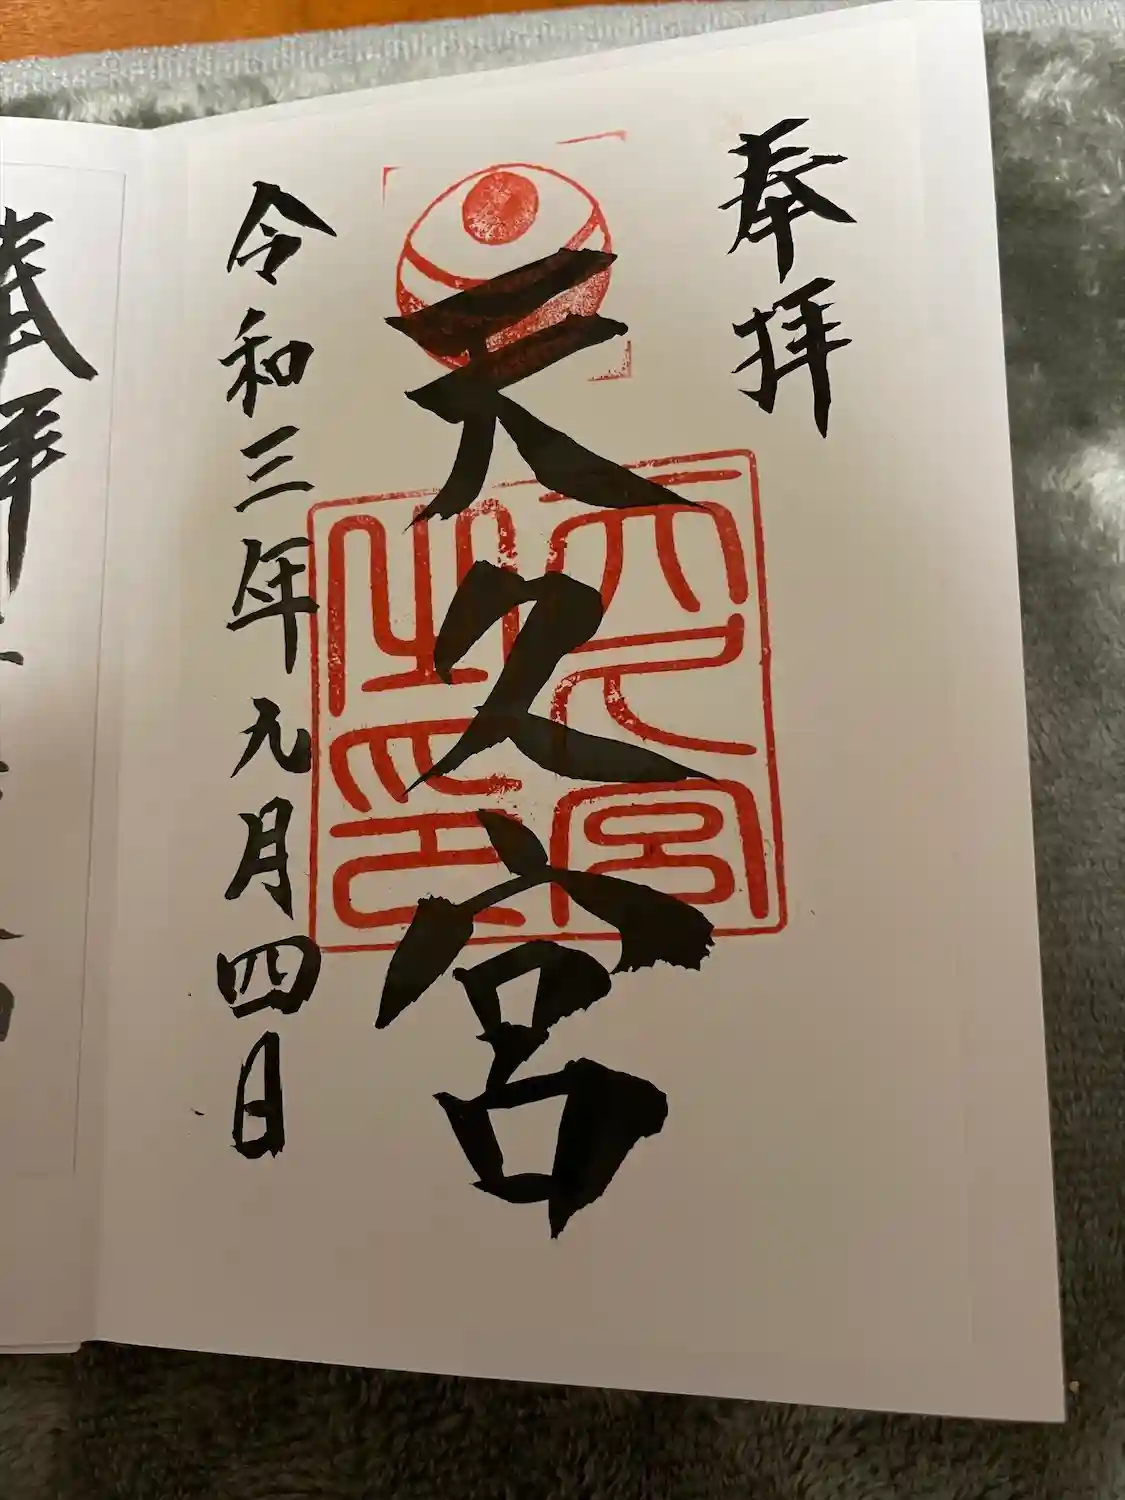 奉拝
天久宮
天久宮
之印
令和三年九月四日